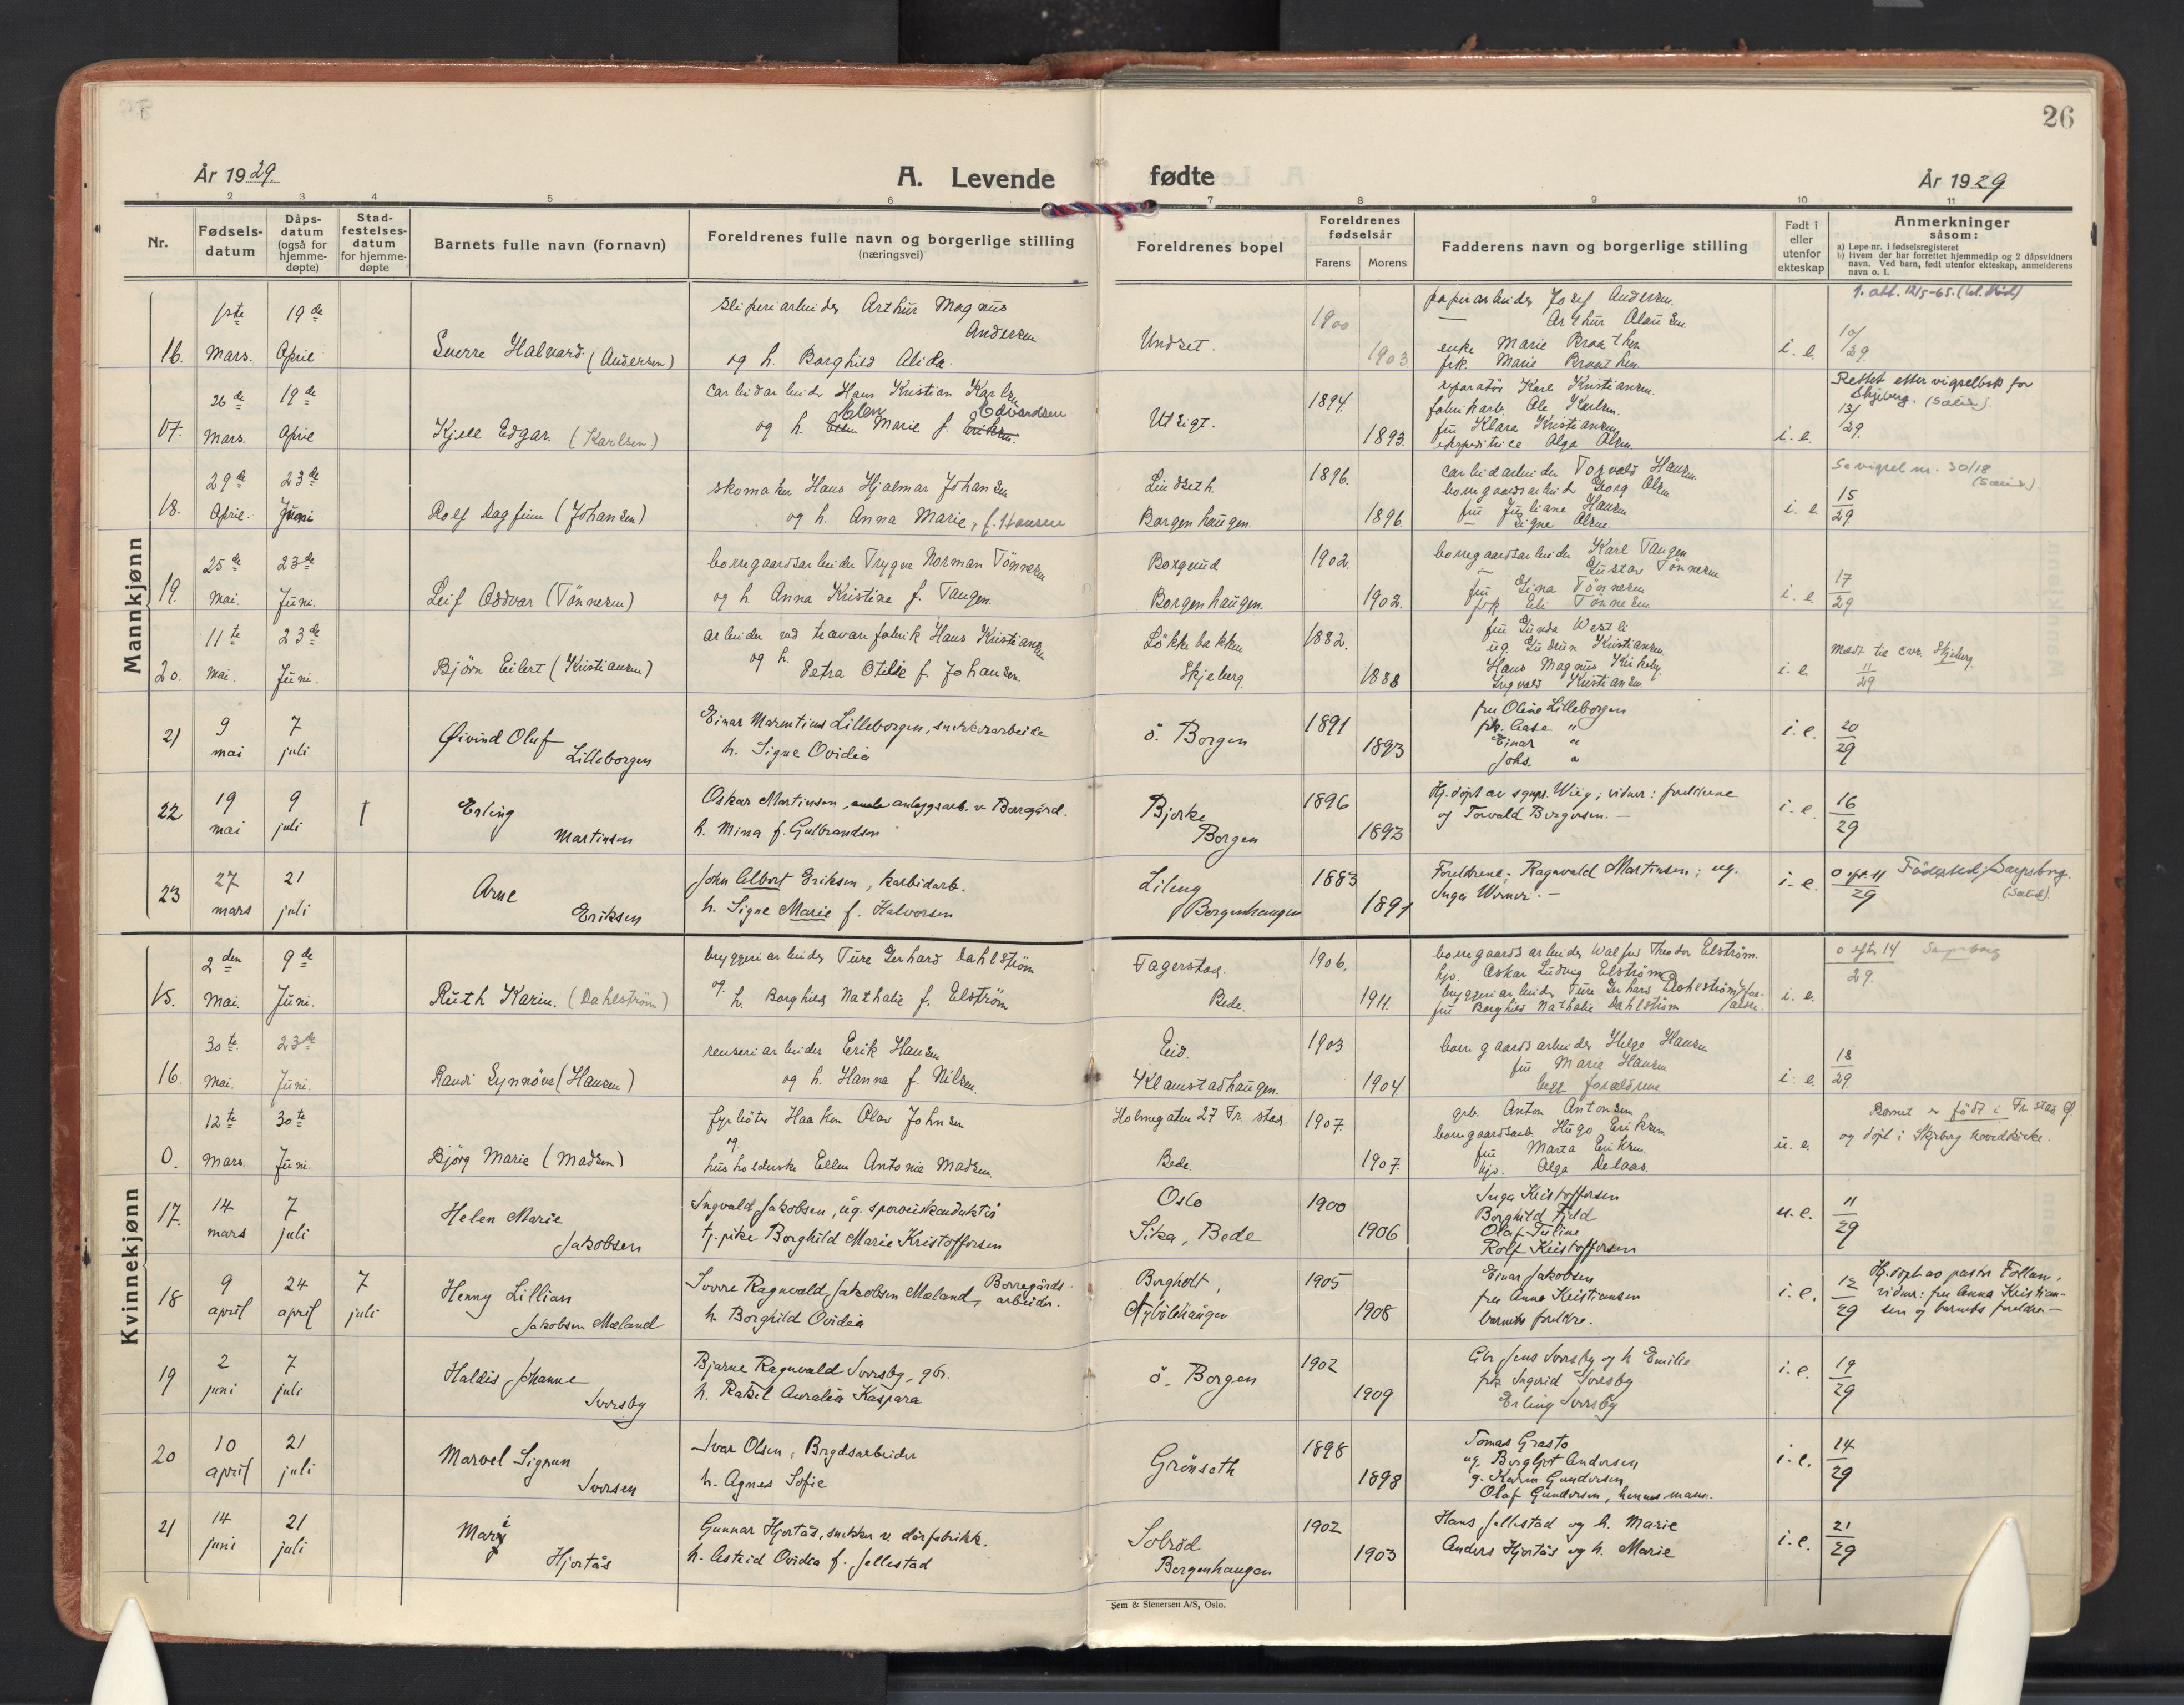 26
År 1929.
A. Levende fødte
År 1929
1 2 3 4 5 6 7 8 9 10 11
Nr.
Fødsels-datum
Dåps-datum (også for hjemme-døpte)
Stad-festelses-datum for hjemme-døpte
Barnets fulle navn (fornavn)
Foreldrenes fulle navn og borgerlige stilling (næringsvei)
Foreldrenes bopel
Foreldrenes fødselsår
Farens Morens
Fadderens navn og borgerlige stilling
Født i eller utenfor ekteskap
Anmerkninger såsom:
a) Løpe nr. i fødselsregisteret
b) Hvem der har forrettet hjemmedåp og 2 dåpsvidners navn. Ved barn, født utenfor ekteskap, anmelderens navn o. l.
Mannkjønn
16. 1ste Mars. 19de April
Sverre Halvard (Andersen)
sliperiarbeider Arthur Magnus Andersen
og h. Borghild Alida.
Undset.
1900 1903
papirarbeider Josef Andersen.
enke Marie Braathen
frk. Marie Braathen.
i. e.
10/29.
17. 26de Mars. 19de April
Kjell Edgar (Karlsen)
carbidarbeider Hans Kristian Karlsen
og h. Elen Marie f. Edvardsen
Utsigt.
1894. 1893.
reparatör Karl Kristiansen.
fabrikarb. Ole Karlsen.
fru Klara Kristiansen
expeditrice Olga Olsen.
i. e.
Rettet etter vigselbok for Skjeberg.
13/29.
18. 29de April. 23de Juni
Rolf Dagfinn (Johansen)
skomaker Hans Hjalmar Johansen
og h. Anna Marie, f. Hansen
Lindseth. Borgenhaugen.
1896. 1896.
carbidarbeider Torvald Hansen
borregaardsarbeid. Georg Olsen
fru Juliane Hansen
— Signe Olsen.
i. e.
Se vigsel nr. 30/18
15/29.
19. 25de Mai. 23de Juni.
Leif Oddvar (Tönnesen)
borregaardsarbeider Trygve Norman Tönnesen
og h. Anna Kristine f. Tangen.
Borgenhaugen.
1902. 1902.
borregaardsarbeider Karl Tangen
— Gustav Tönnesen
fru Lina Tönnesen
i. e.
17/29
20. 11te Mai. 23de Juni.
Björn Eilert (Kristiansen)
arbeider ved travarefabrik Hans Kristiansen
og h. Petra Otilde f. Johansen.
Lökkebakken Skjeberg.
1882. 1888
fru Gunda Westli
ug. Gudrun Kristiansen.
Hans Magnus Kirkeby.
Ingvald Kristiansen
i. e.
11/29
21 9 mai 7 juli
Øivind Oluf Lilleborgen
Einar Marentius Lilleborgen, snekkerarbeide
h. Signe Ovidia
ö. Borgen
1891 1893
fru Oline Lilleborgen
frk. Aase "
Einar "
Johs. "
i. e.
20/29
22 19 mai 9 juli 1
Erling Martinsen
Oskar Martinsen, anleggsarb. v. Borregård.
h. Mina f. Gulbrandsen
Bjerke Borgen
1896 1893
Hj. döpt av sgnpr. Wiig; vidner: foreldrene
og Torvald Borgersen. —
i. e.
16/29
23 27 mars 21 juli
Arne Eriksen
John Albert Eriksen, karbidarb.
h. Signe Marie f. Halvorsen
Lileng Borgenhaugen
1883 1891
Foreldrene. Ragnvald Martinsen; ug.
i. e.
29
Födested: Sarpsborg.
Kvinnekjønn
15. 2den Mai. 9de Juni.
Ruth Karin. (Dahlström)
bryggeriarbeider Ture Gerhard Dahlström
og h. Borghild Nathalie f. Elström
Fagerstad. Bede.
1906. 1911.
borregaardsarbeider Walfred Theodor Elström.
hjv. Oskar Ludvig Elström.
bryggeriarbeider Ture Gerhard Dahlström
fru Borghild Nathalie Dahlström
i. e.
29.
Sarpsborg
16. 30te Mai. 23de Juni.
Randi Synnöve (Hansen)
renseriarbeider Erik Hansen
og h. Hanna f. Nilsen.
Eid. Klavestadhaugen.
1903 1904.
borregaardsarbeider Helge Hansen
fru Marie Hansen
begge foreldrene
i. e.
18/29.
0. 12te Mars. 30te Juni.
Björg Marie (Madsen)
fyrböter Haakon Olav Johnsen
og
husholderske Ellen Antonie Madsen.
Holmegaten 27 Fr. stad. Bede.
1907. 1907.
grb. Anton Antonsen
borregaardsarb. Hugo Eriksen
fru Marta Eriksen.
hjv. Olga Delaas.
u. e.
Barnet er födt i Fr. stad
og döpt i Skjeberg hovedkirke.
17. 14 mars 7 juli
Helen Marie Jakobsen
Ingvald Jakobsen, ug. sporveiskonduktör
tj. pike Borghild Marie Kristoffersen
Oslo
Sika, Bede
1900 1906
Inga Kristoffersen
Borghild Fjeld
Olaf Juline
Rolf Kristoffersen
u. e.
11/29
18 9 april 24 april 7 juli
Henny Lillian Jakobsen Mæland
Sverre Ragnvald Jakobsen Mæland, Borregårdsarbeider.
h. Borghild Ovidia
Borgholt,
1905 1908
Einar Jakobsen
fru Anna Kristiansen
barnets foreldre.
i. e.
12/29
Hj. döpt av pastor Folkan,
vidner: fru Anna Kristian-
sen og barnets foreldre —
19 2 juni 7 juli
Haldis Johanne Sversby
Bjarne Ragnvald Sversby, gbr.
h. Rakel Auralia Kaspara
ö. Borgen
1902 1909
Gbr Jens Sversby og h Emilie
frk Ingerid Sversby
Erling Sversby
i. e.
19/29
20 10 april 21 juli
Marvel Sigrun Iversen
Ivar Olsen, Brgdsarbeider
h. Agnes Sofie
Grönseth
1898 1898
Tomas Grasto
ug. Bergljot Andersen
g. Karin Gundersen,
Olaf Gundersen, hennes mann.
i. e.
14/29
21 14 juni 21 juli
Mari Hjortås
Gunnar Hjortås, snekker v. dörfabrikk.
h. Astrid Ovidia f. Jellestad
Solröd Borgenhaugen
1902 1903
Hans Jellestad og h. Marie
Anders Hjortås og h. Marie
i. e.
21/29
Sem & Stenersen A/S, Oslo.